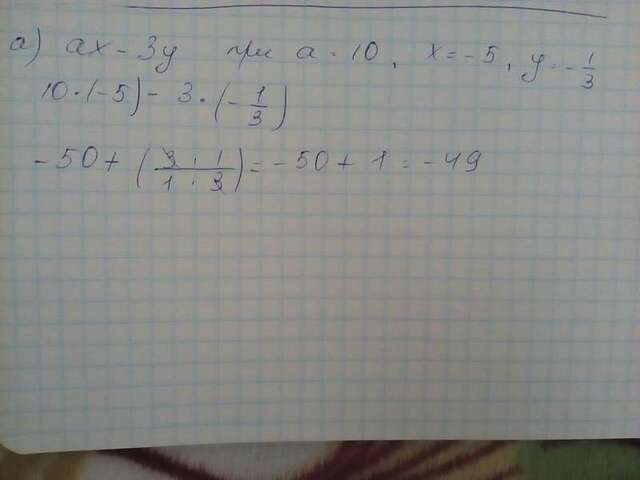 а) ax - 3y при a = 10, x = -5, y = -1/3
10 · (-5) - 3 · (-1/3)
-50 + (3 · 1 / 1 · 3) = -50 + 1 = -49